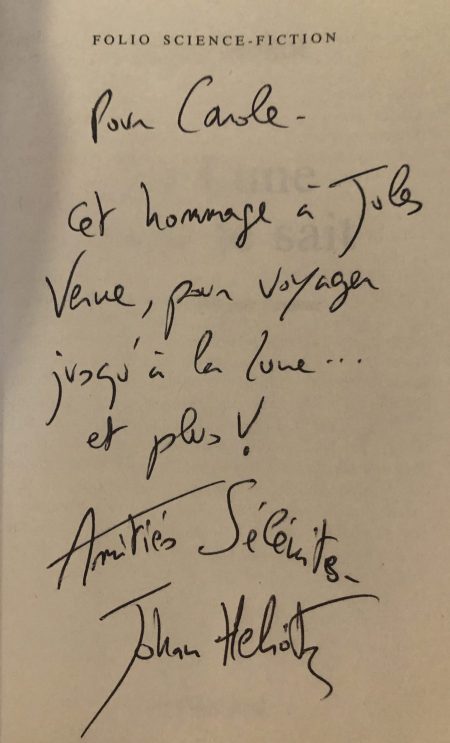 FOLIO SCIENCE-FICTION
Pour Carole -
Cet hommage à Jules
Verne, pour voyager
jusqu'à la lune...
et plus !
Amitiés Sélénites -
Johan Heliot